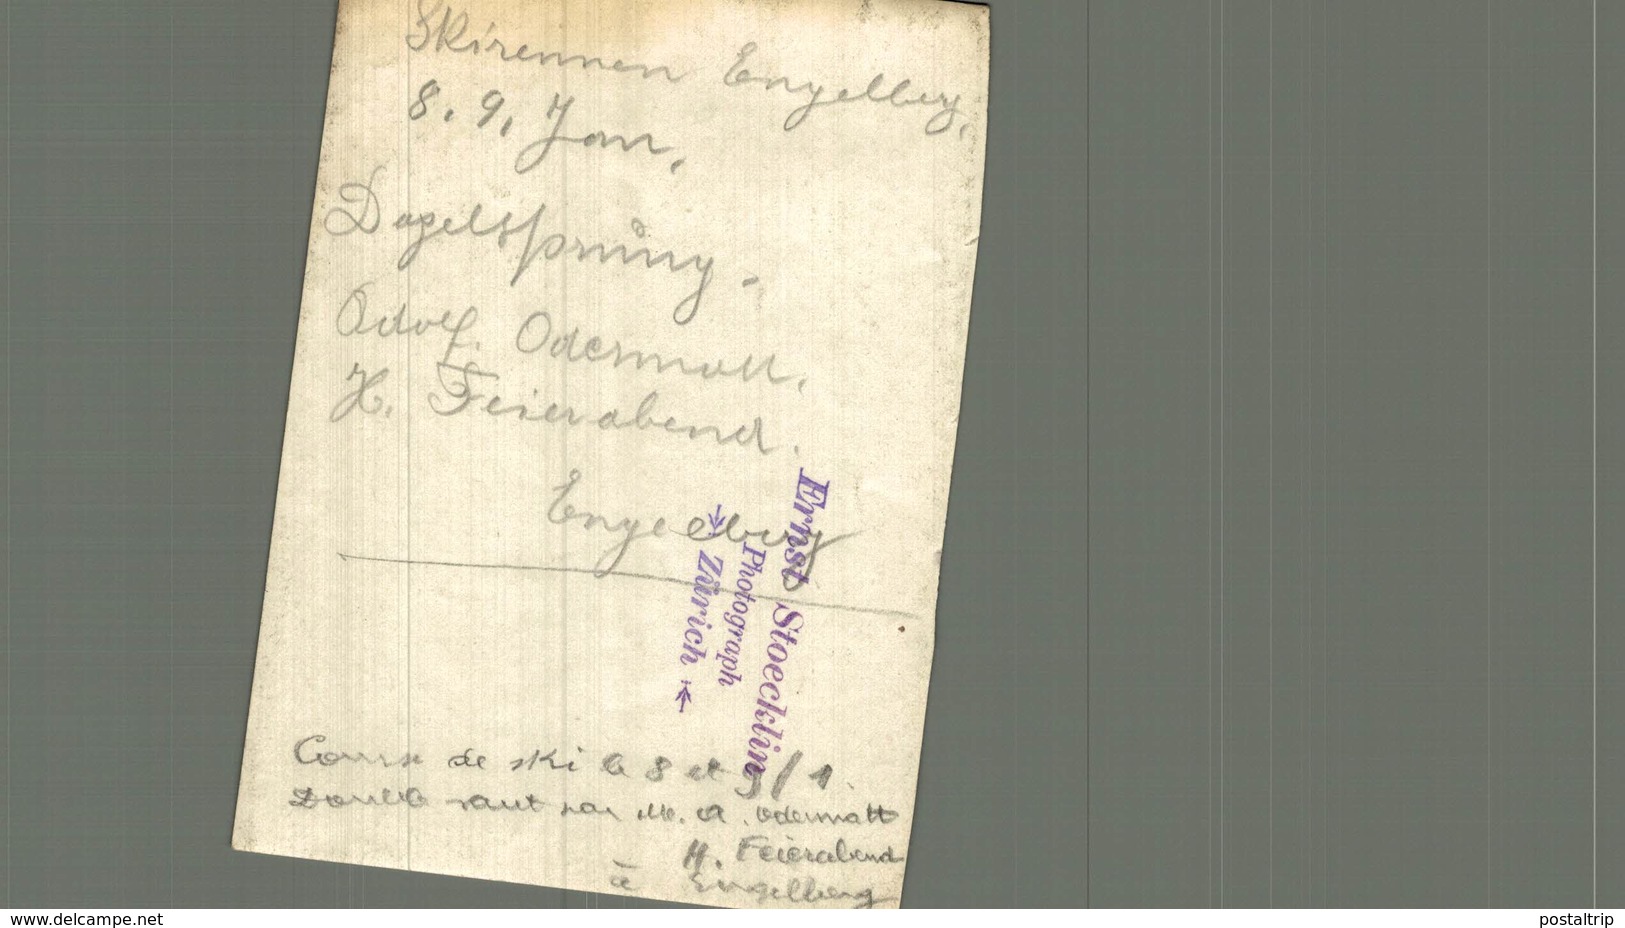 Skirennen Engelberg,
8. 9. Jan.
Dopelsprung.
Adolf. Odermatt.
H. Feierabend.
Engelberg
Ernst Stoecklin
Photograph
Zürich
Course de ski le 8 et 9/1.
Double saut par M. A. Odermatt
H. Feierabend
à Engelberg
www.delcampe.net
postaltrip